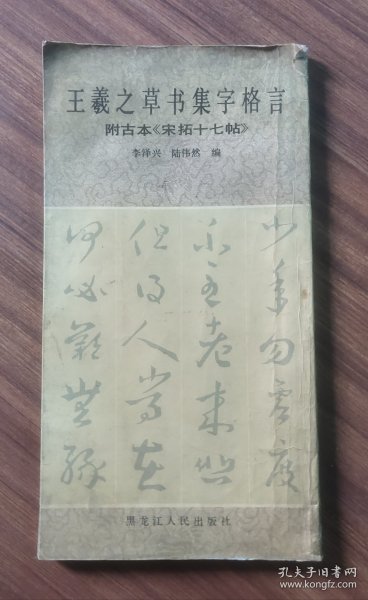 王羲之草书集字格言
附古本《宋拓十七帖》
李泽兴 陆伟然 编
少年勿虚度
不至老来悲
但得人常在
何必叹无缘
黑龙江人民出版社
孔夫子旧书网